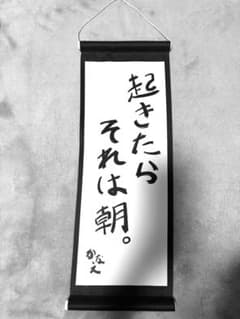 起きたら
それは朝。
かなえ